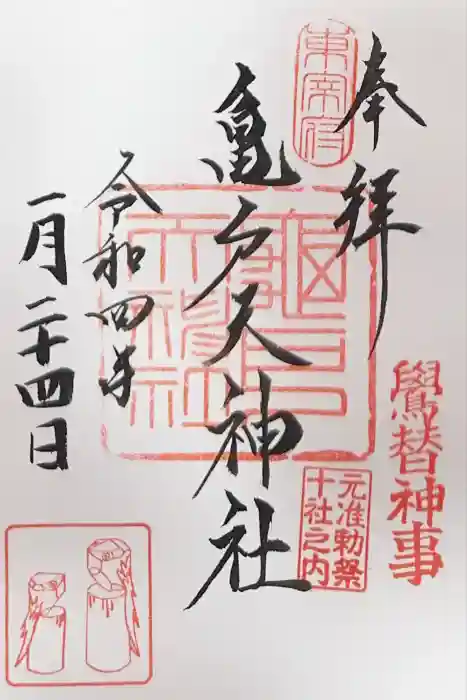 奉拝
東宰府
亀戸天神社
鷽替神事
元准勅祭
十社之内
令和四年
一月二十四日